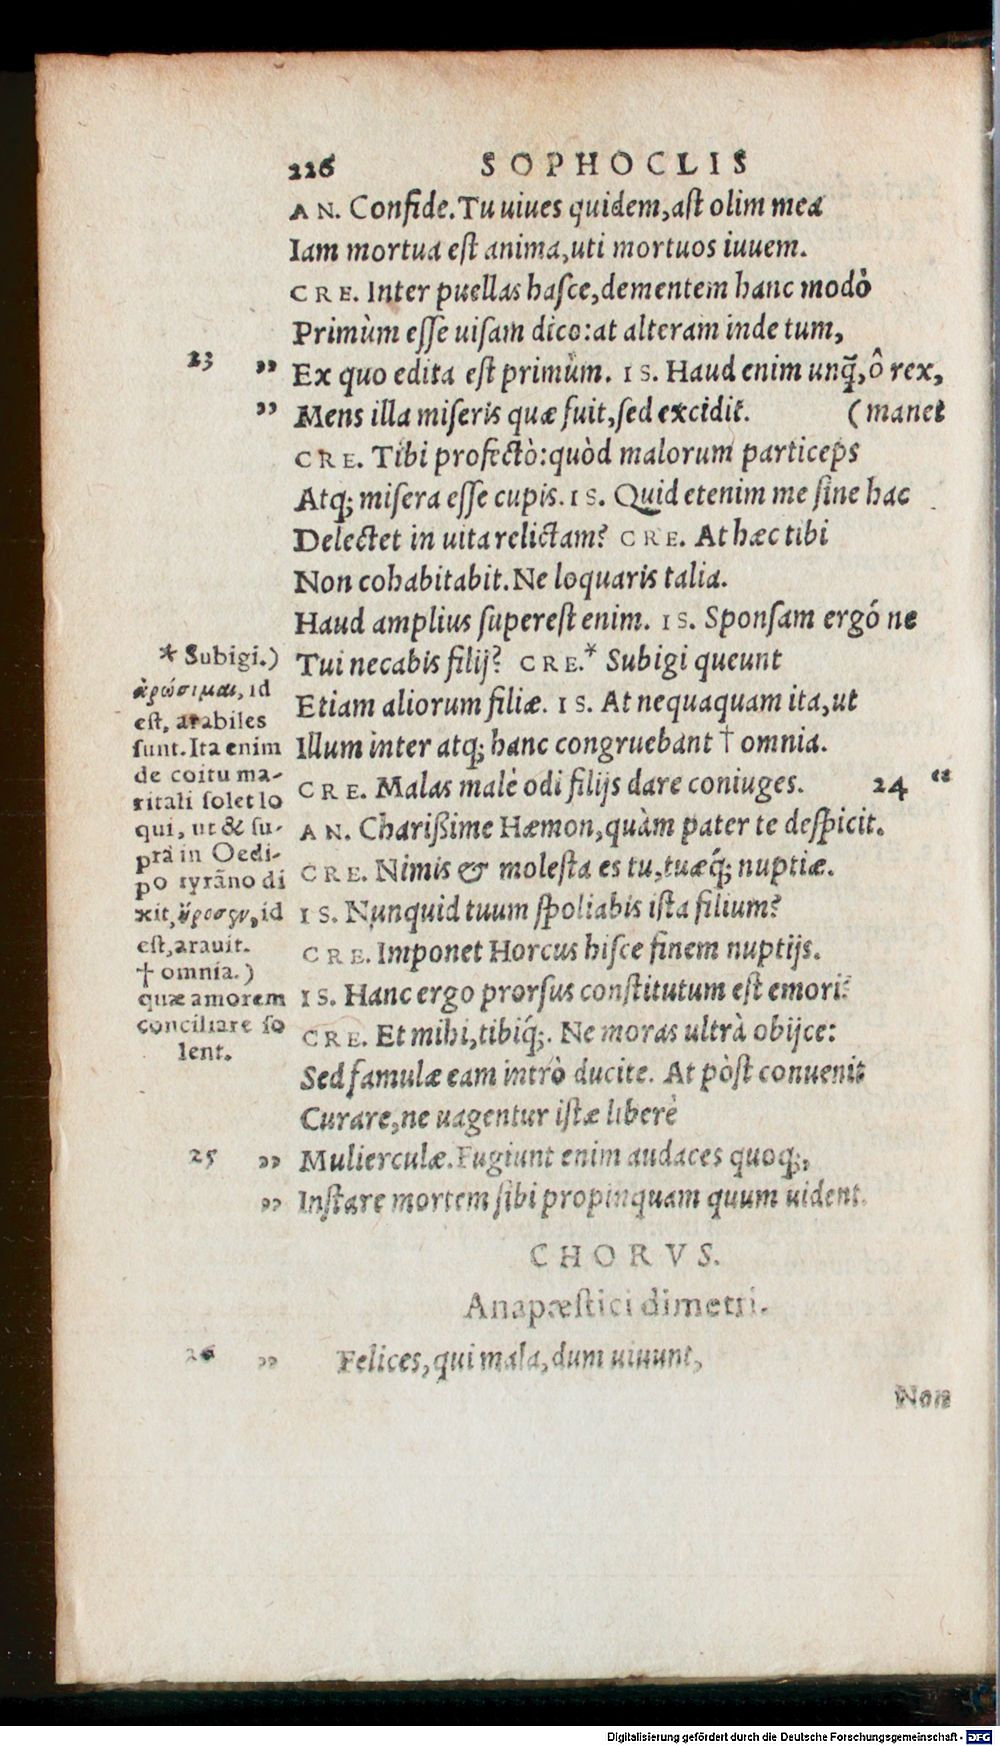 226 SOPHOCLIS
AN. Confide. Tu uiues quidem, ast olim mea
Iam mortua est anima, uti mortuos iuuem.
CRE. Inter puellas hasce, dementem hanc modò
Primùm esse uisam dico: at alteram inde tum,
23 ,, Ex quo edita est primùm. IS. Haud enim unq̃, ô rex,
,, Mens illa miseris quæ fuit, sed excidit. (manet
CRE. Tibi profectò: quòd malorum particeps
Atq; misera esse cupis. IS. Quid etenim me sine hac
Delectet in uita relictam? CRE. At hæc tibi
Non cohabitabit. Ne loquaris talia.
Haud amplius superest enim. IS. Sponsam ergó ne
Tui necabis filij? CRE.* Subigi queunt
Etiam aliorum filiæ. IS. At nequaquam ita, ut
Illum inter atq; hanc congruebant † omnia.
CRE. Malas malè odi filijs dare coniuges. 24 “
AN. Charißime Hæmon, quàm pater te despicit.
CRE. Nimis & molesta es tu, tuæq́; nuptiæ.
IS. Nunquid tuum spoliabis ista filium?
CRE. Imponet Horcus hisce finem nuptijs.
IS. Hanc ergo prorsus constitutum est emori?
CRE. Et mihi, tibiq́;. Ne moras ultrà obijce:
Sed famulæ eam intrò ducite. At pòst conuenit
Curare, ne uagentur istæ liberè
25 ,, Mulierculæ. Fugiunt enim audaces quoq;,
,, Instare mortem sibi propinquam quum uident.
* Subigi.)
ἀρώσιμαι, id
est, arabiles
sunt. Ita enim
de coitu ma-
ritali solet lo
qui, ut & su-
prà in Oedi-
po tyrãno di
xit, ἤροσεν, id
est, arauit.
† omnia.)
quæ amorem
conciliare so
lent.
CHORVS.
Anapæstici dimetri.
26 ,, Felices, qui mala, dum uiuunt,
Non
Digitalisierung gefördert durch die Deutsche Forschungsgemeinschaft - DFG